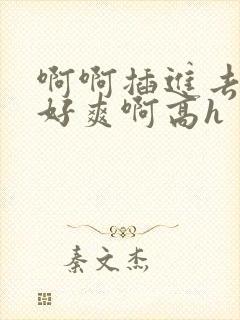 啊啊插进去
好爽啊高h
秦文杰